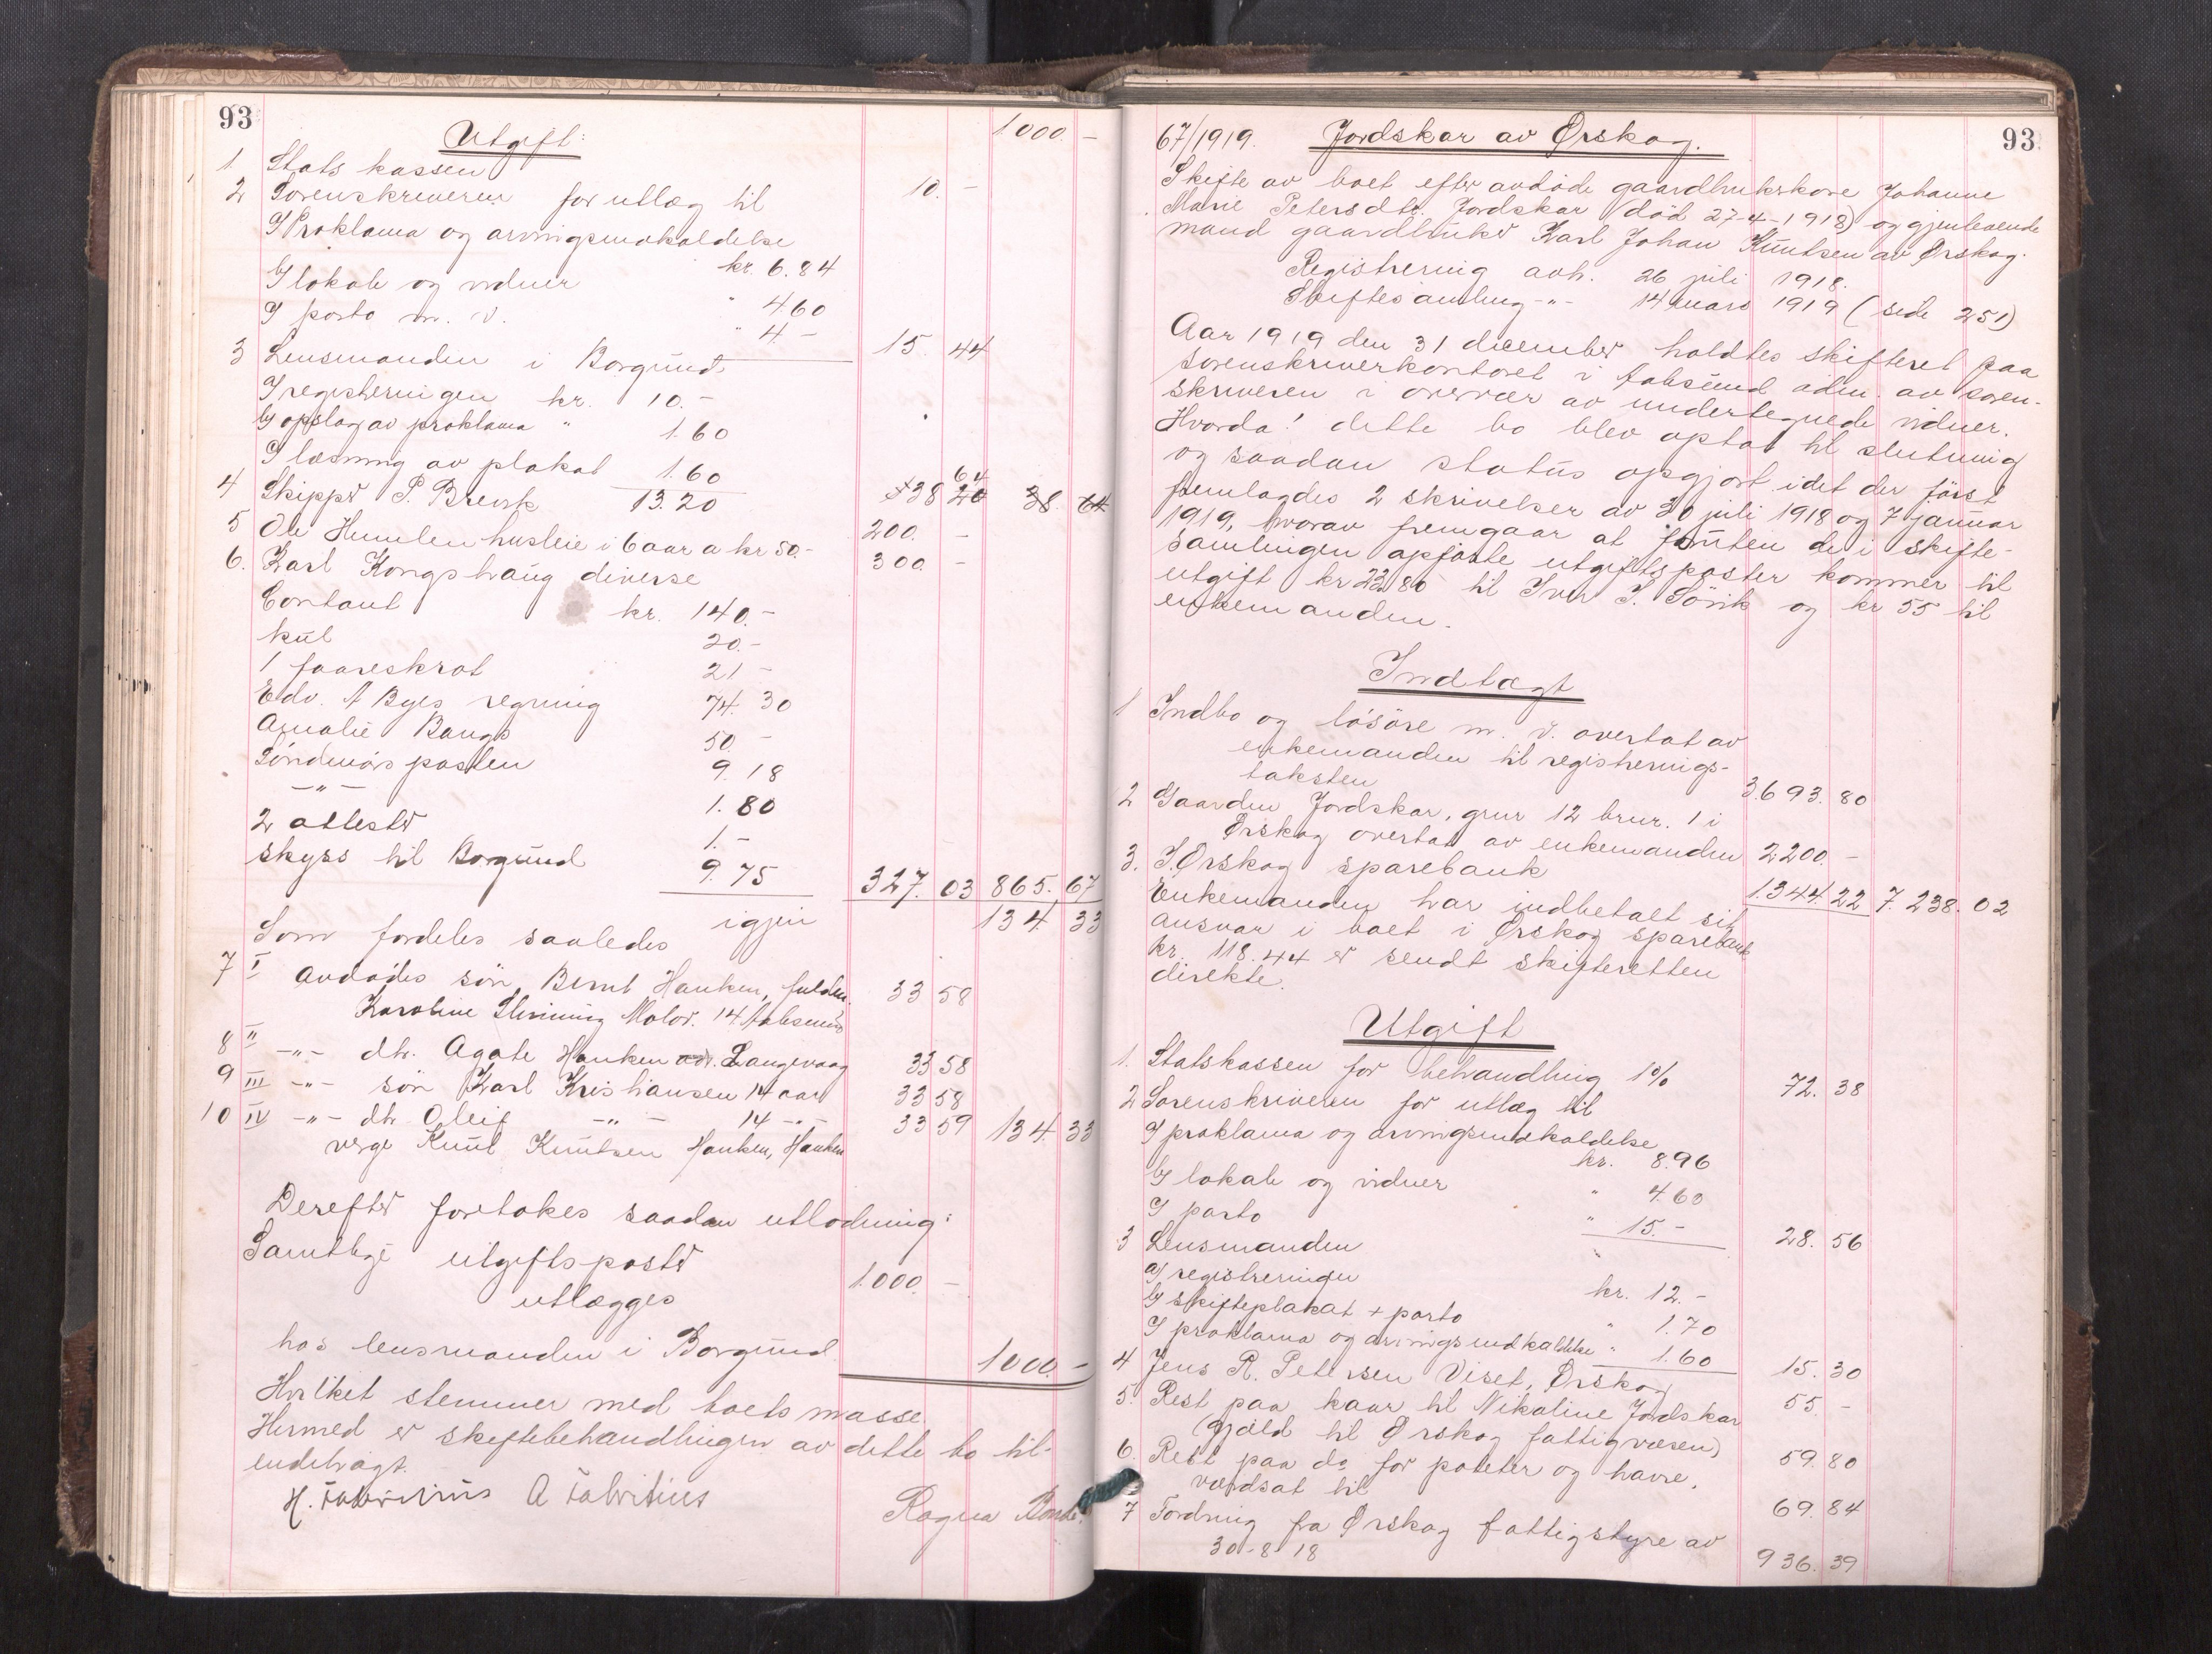 93
Utgift:
1000 -
1 Statskassen 10. -
2 Sorenskriveren for utlæg til
a) Proklama og arvingsindkaldelse
kr. 6.84
b) lokale og vidner " 4.60
c) porto m. v. " 4 - 15 44
3 Lensmanden i Borgund
a) registreringen kr. 10.-
b) opslag av proklama " 1.60
c) læsning av plakat 1.60
13.20
4 Skipper P. Brevik 38 64 38. 64
5 Ole Humlen husleie i 6 aar a kr 50.- 200. -
6. Karl Kongshaug diverse 300. -
Contant kr. 140.-
kul 20.-
1 faareskrot 21 -
Edv. A Byes regning 74. 30
Amalie Bangs 50. -
Söndmörsposten 9. 18
- " - 1. 80
2 attester 1. -
skyss til Borgund 9. 75 327. 03 865. 67
igjen 134. 33
Som fordeles saaledes
7 I avdødes sön Bernt Hanken, fuldm. 33 58
Karoline Slinning Molov. 14 Aalesund
8 II - " - dtr. Agate Hanken adr. Langevaag 33 58
9 III - " - sön Karl Kristiansen 14 aar 33 58
10 IV - " - dtr Oleif - " - 14 - " - 33 59 134. 33
verge Knut Knutsen Hanken, Hanken
Derefter foretokes saadan utlodning:
Samtlige utgiftsposter 1.000. -
utlægges
hos lensmanden i Borgund 1000. -
Hvilket stemmer med boets masse.
Hermed er skiftebehandlingen av dette bo til-
endebragt.
H. Fabritius A Fabritius
Ragna
93
67/1919. Jordskar av Ørskog.
Skifte av boet efter avdöde gaardbrukerkone Johanne
Marie Petersdtr. Jordskar (död 27-4-1918) og gjenlevende
mand gaardbruker Karl Johan Knutsen av Ørskog.
Registrering avh. 26 juli 1918.
Skiftesamling - " - 14 mars 1919 (side 251)
Aar 1919 den 31 december holdtes skifteret paa
sorenskriverkontoret i Aalesund adm. av soren-
skriveren i overvær av undertegnede vidner.
Hvorda! dette bo blev optat til slutning
og saadan status opgjort idet der først
fremlagdes 2 skrivelser av 30 juli 1918 og 7 januar
1919, hvorav fremgaar at foruten de i skifte-
samlingen opførte utgiftsposter kommer til
utgift kr 23.80 til Iver I. Sörik og kr 55 til
enkemanden.
Indtægt
1 Indbo og lösöre m. v. overtat av
enkemanden til registrerings-
taksten 3.693. 80
2 Gaarden Jordskar, gnr 12 brnr. 1 i
Ørskog overtat av enkemanden 2200. -
3. I Ørskog sparebank 1.344. 22 7. 238. 02
Enkemanden har indbetalt sit
ansvar i boet i Ørskog sparebank
kr. 118.44 er sendt skifteretten
direkte.
Utgift
1. Statskassen for behandling 1 % 72. 38
2 Sorenskriveren for utlæg til
a) proklama og arvingsindkaldelse
kr. 8.96
b) lokale og vidner " 4.60
c) porto " 15.- 28. 56
3 Lensmanden
a) registreringen kr. 12. -
b) skifteplakat + porto " 1.70
c) proklama og arvingsindkaldelse " 1.60 15. 30
4 Jens R. Petersen Viset, Ørskog 55. -
5. Rest paa kaar til Nikoline Jordskar
(gjæld til Ørskog fattigvæsen) 59. 80
6. Rest paa do for poteter og havre.
værdsat til 69. 84
7 Fordring fra Ørskog fattigstyre av
30-8-18 936. 39